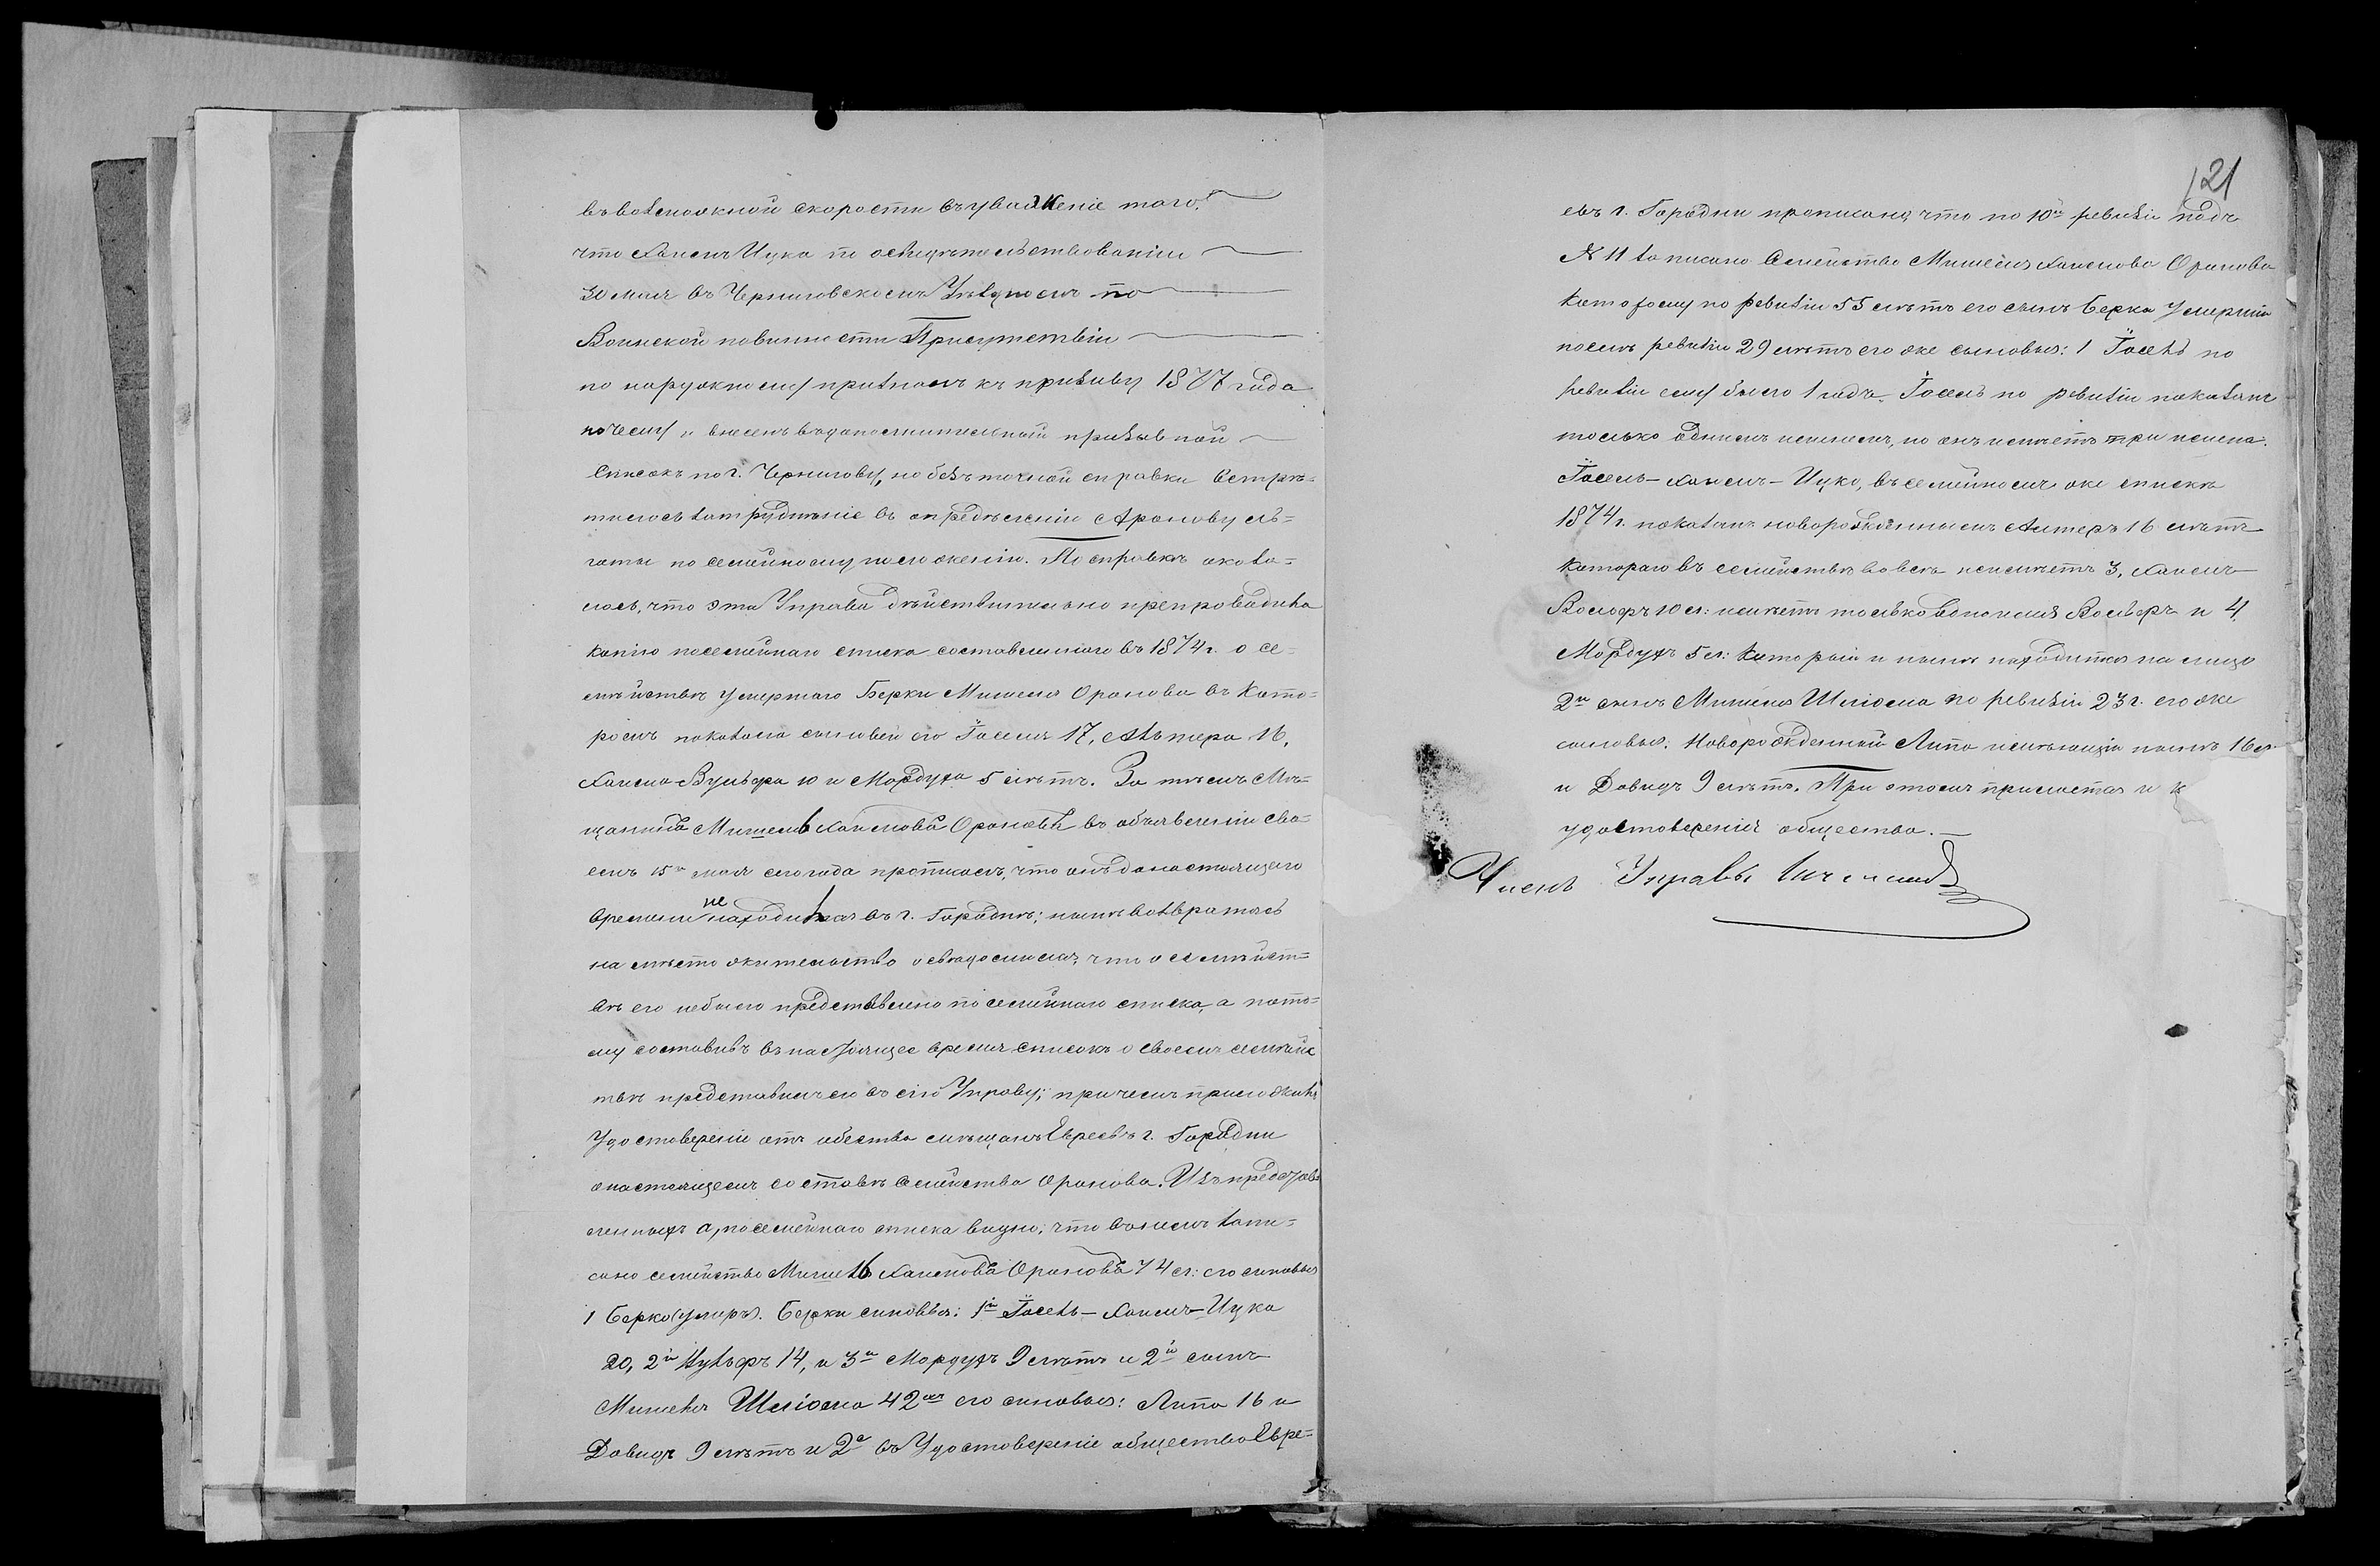 въ возможной скорости въ уваженіе того,
что Хаимъ Ицка по освидѣтельствованіи
30 мая въ Черниговскомъ Уѣздномъ по
Воинской повинности Присутствіи
по наружному признанъ къ призыву 1877 года
почему и внесенъ въ дополнительный призывной
списокъ по г. Чернигову, но безъ точной справки встрѣ=
тилось затрудненіе въ опредѣленіи Аронову ль=
готы по семейному положенію. По справкѣ оказа=
лось, что эта Управа дѣйствительно препроводила
копію посемейнаго списка составленнаго въ 1874 г. о се=
мѣйствѣ умершаго Берки Мишеля Оронова въ кото=
ромъ показано сыновей его Іосель 17, Альтера 16,
Хаима-Вульфа 10 и Мордуха 5 лѣтъ. За тѣмъ Мѣ=
щанинъ Мишель Хаимовъ Ороновъ въ объявленіи сво=
емъ 15го мая сего года прописалъ, что онъ до настоящаго
времени не находился въ г. Городнѣ; нынѣ возвратясь
на мѣсто жительство освѣдомился, что о семѣйст=
вѣ его небыло представлено посемейнаго списка, а пото=
му составивъ въ настоящее время списокъ о своемъ семѣйс
твѣ представилъ его въ сію Управу; причемъ приложилъ
Удостовереніи отъ обества мѣщанъ Евреевъ г. Городни
о настоящемъ составѣ Семѣйства Оронова. Изъ представ
ленныхъ а, посемейнаго списка видно, что въ немъ запи=
сано семейство Мишель Хаимовъ Ороновъ 74 л: его сыновья
1 Берко (умеръ). Берки сыновья: 1й Іосель-Хаимъ-Ицка
20, 2й Вульфъ 14, и 3й Мордухъ 9 лѣтъ и 2й сынъ
Мишеля Шліома 42 лѣтъ его сыновья: Липа 16 и
Давидъ 9 лѣтъ и 2е въ Удостовереніе общества Евре=
121
евъ г. Городни прописано что по 10й ревизіи подъ
№ 11 записано Семейство Мишеля Хаимова Оронова
которому по ревизіи 55 лѣтъ его сынъ Берка Умершій
послѣ ревизіи 29 лѣтъ его же сыновья: 1 Іосель по
ревизіи ему было 1 годъ. Іосель по ревизіи показанъ
только однимъ именемъ, но онъ имѣетъ три имена.
Іосель-Хаимъ-Ицко, въ семейномъ же спискѣ
1874 г. показанъ новорожденнымъ Алтеръ 16 лѣтъ
котораго въ семействѣ вовсѣ неимѣетъ 3, Хаимъ
Волфъ 10 л: имѣетъ только одно имя Вольфъ и 4,
Мордухъ 5 л: который и нынѣ находится на лицо
2й сынъ Мишеля Шліома по ревизіи 23 г. его же
сыновья: Новорожденный Липа имѣющій нынѣ 16 л
и Давидъ 9 лѣтъ. При этомъ прилагается и к
удостоверенія общества.
Членъ Управы